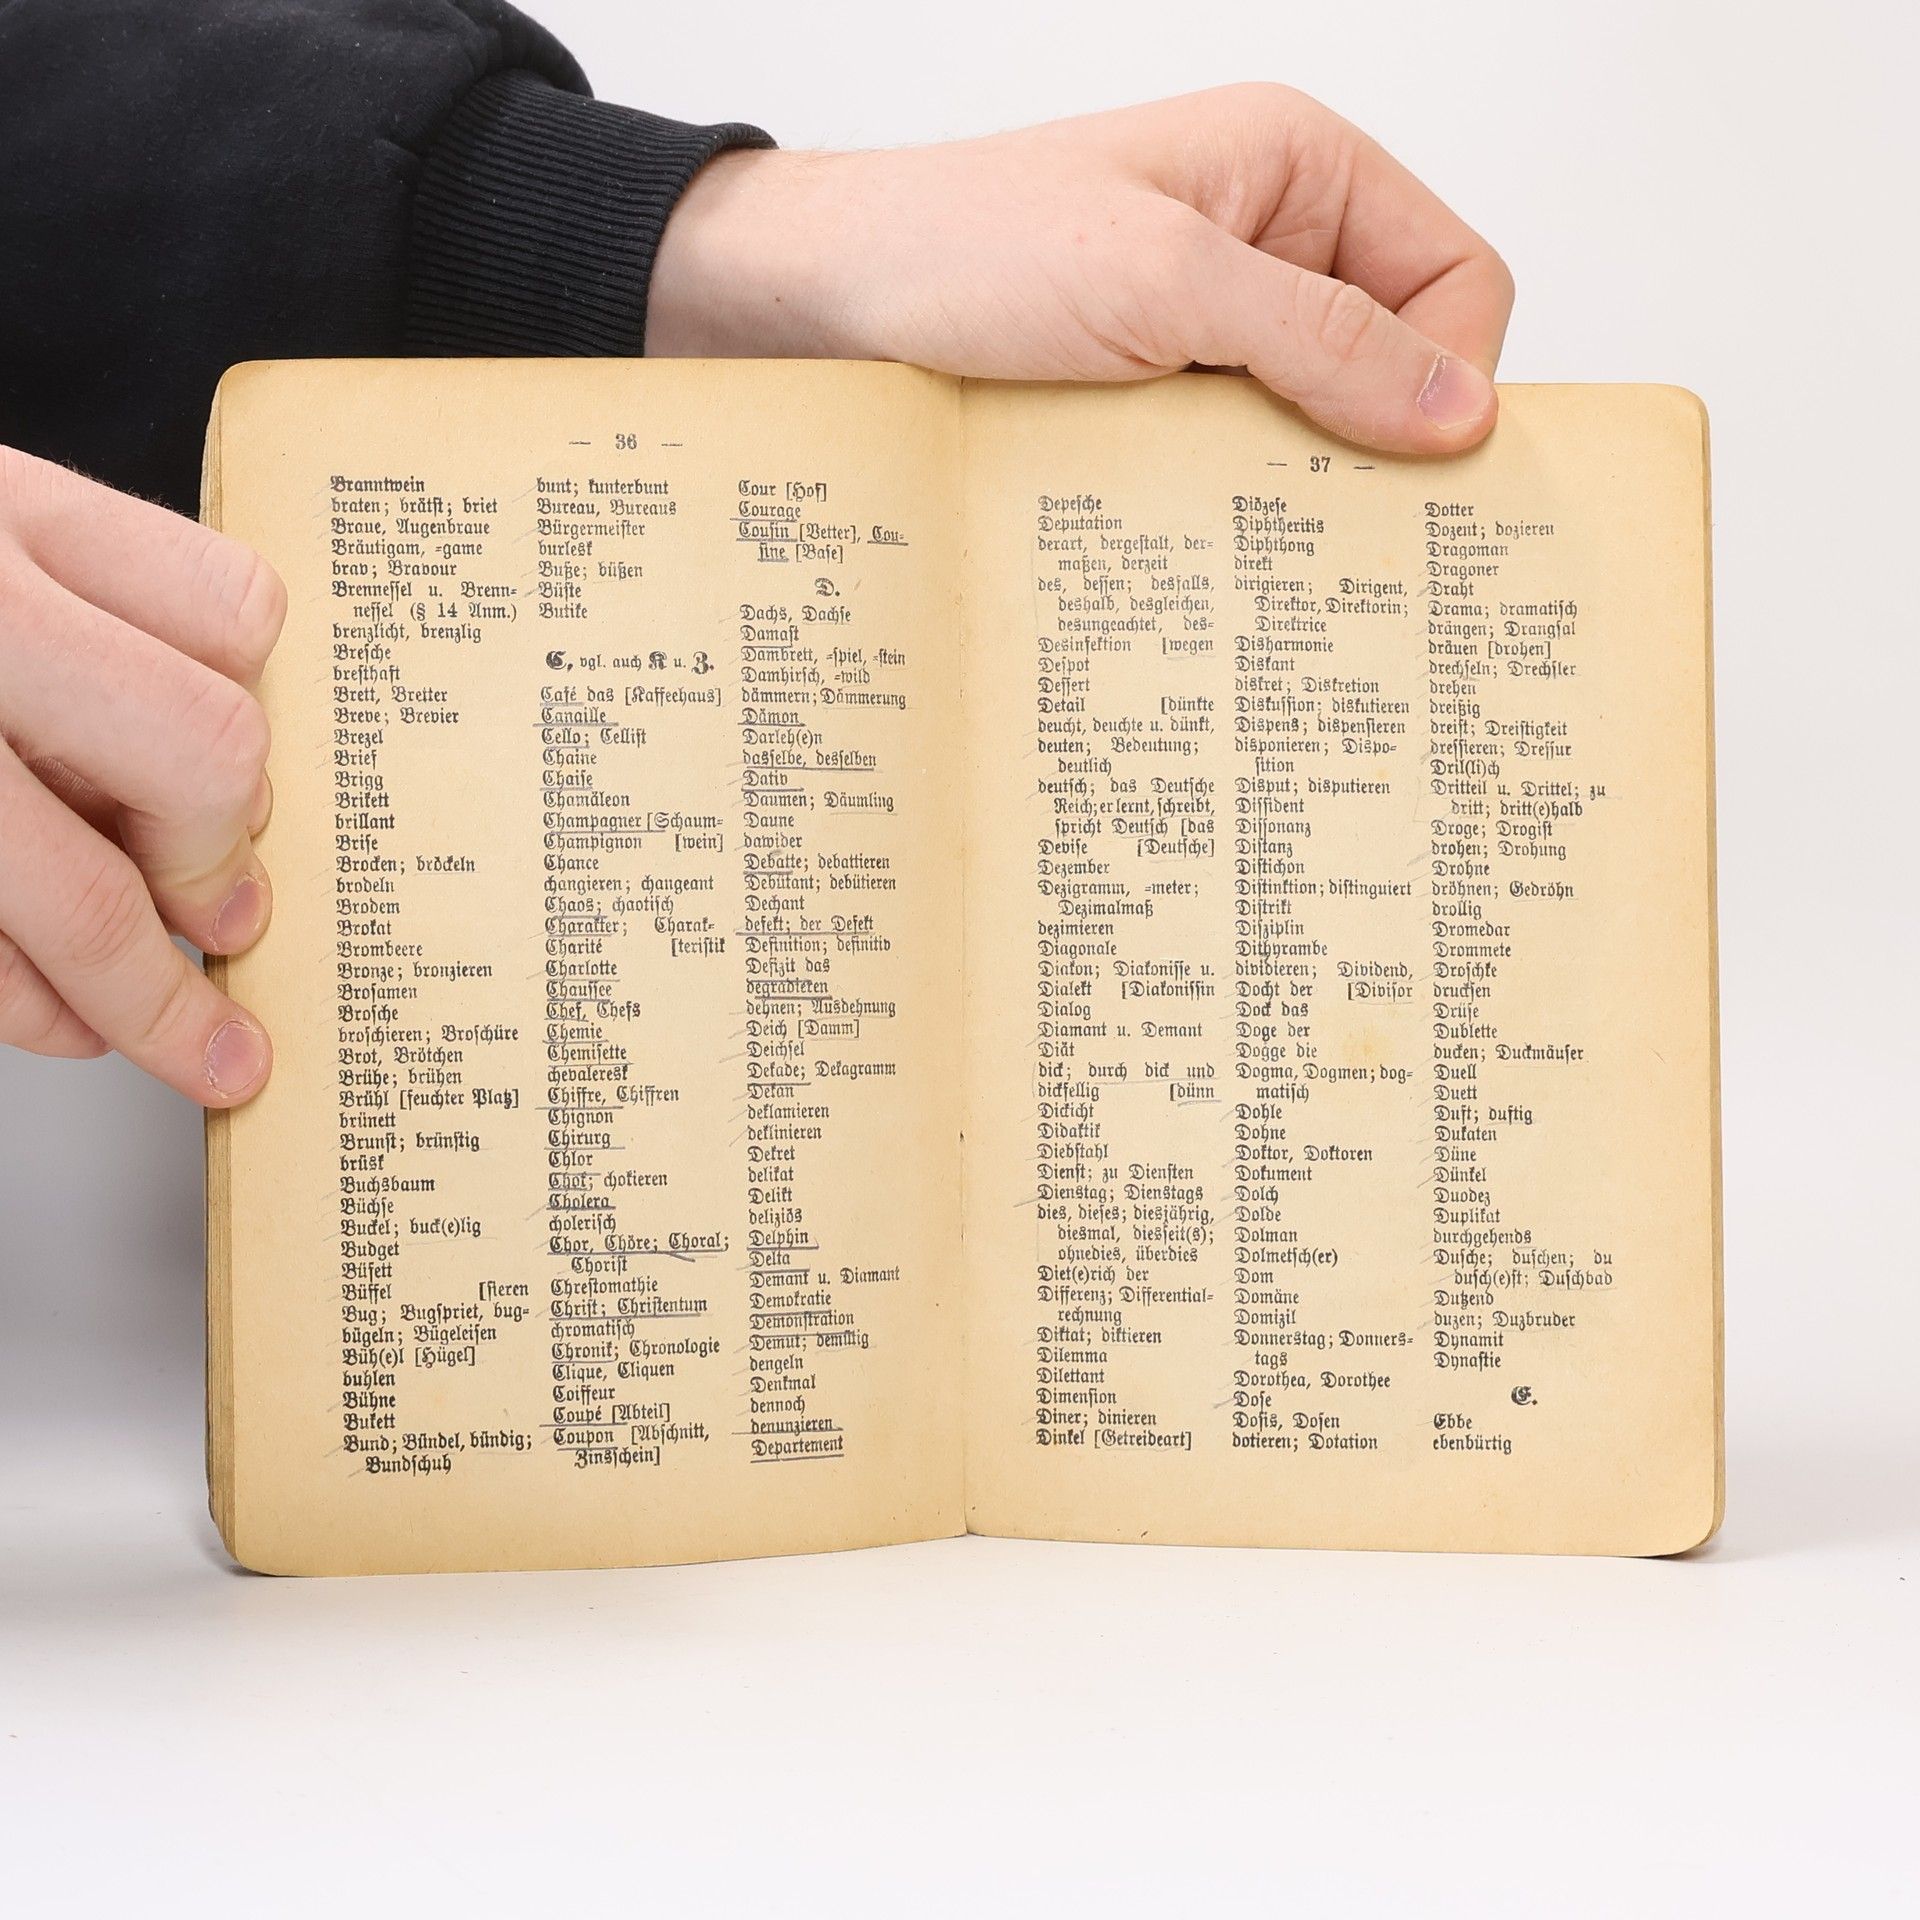 — 36 —
Branntwein
braten; brätst; briet
Braue, Augenbraue
Bräutigam, -game
brav; Bravour
Brennessel u. Brenn-
nessel (§ 14 Anm.)
brenzlicht, brenzlig
Bresche
bresthaft
Brett, Bretter
Breve; Brevier
Brezel
Brief
Brigg
Brikett
brillant
Brise
Brocken; bröckeln
brodeln
Brodem
Brokat
Brombeere
Bronze; bronzieren
Brosamen
Brosche
broschieren; Broschüre
Brot, Brötchen
Brühe; brühen
Brühl [feuchter Platz]
brünett
Brunst; brünstig
brüsk
Buchsbaum
Büchse
Buckel; buck(e)lig
Budget
Büfett
Büffel [sieren
Bug; Bugspriet, bug-
bügeln; Bügeleisen
Büh(e)l [Hügel]
buhlen
Bühne
Bukett
Bund; Bündel, bündig;
Bundschuh
bunt; kunterbunt
Bureau, Bureaus
Bürgermeister
burlesk
Buße; büßen
Büste
Butike
C, vgl. auch K u. Z.
Café das [Kaffeehaus]
Canaille
Cello; Cellist
Chaine
Chaise
Chamäleon
Champagner [Schaum-
Champignon [wein]
Chance
changieren; changeant
Chaos; chaotisch
Charakter; Charak-
Charité [teristik
Charlotte
Chaussee
Chef, Chefs
Chemie
Chemisette
chevaleresk
Chiffre, Chiffren
Chignon
Chirurg
Chlor
Chok; chokieren
Cholera
cholerisch
Chor, Chöre; Choral;
Chorist
Chrestomathie
Christ; Christentum
chromatisch
Chronik; Chronologie
Clique, Cliquen
Coiffeur
Coupé [Abteil]
Coupon [Abschnitt,
Zinsschein]
Cour [Hof]
Courage
Cousin [Vetter], Cou-
sine [Base]
D.
Dachs, Dachse
Damast
Dambrett, -spiel, -stein
Damhirsch, -wild
dämmern; Dämmerung
Dämon
Darleh(e)n
dasselbe, desselben
Dativ
Daumen; Däumling
Daune
dawider
Debatte; debattieren
Debütant; debütieren
Dechant
defekt; der Defekt
Definition; definitiv
Defizit das
degradieren
dehnen; Ausdehnung
Deich [Damm]
Deichsel
Dekade; Dekagramm
Dekan
deklamieren
deklinieren
Dekret
delikat
Delikt
deliziös
Delphin
Delta
Demant u. Diamant
Demokratie
Demonstration
Demut; demütig
dengeln
Denkmal
dennoch
denunzieren
Departement
— 37 —
Depesche
Deputation
derart, dergestalt, der-
maßen, derzeit
des, dessen; desfalls,
deshalb, desgleichen,
desungeachtet, des-
Desinfektion [wegen
Despot
Dessert
Detail [dünkte
deucht, deuchte u. dünkt,
deuten; Bedeutung;
deutlich
deutsch; das Deutsche
Reich; er lernt, schreibt,
spricht Deutsch [das
Devise [Deutsche]
Dezember
Dezigramm, -meter;
Dezimalmaß
dezimieren
Diagonale
Diakon; Diakonisse u.
Dialekt [Diakonissin
Dialog
Diamant u. Demant
Diät
dick; durch dick und
dickfellig [dünn
Dickicht
Didaktik
Diebstahl
Dienst; zu Diensten
Dienstag; Dienstags
dies, dieses; diesjährig,
diesmal, diesseit(s);
ohnedies, überdies
Diet(e)rich der
Differenz; Differential-
rechnung
Diktat; diktieren
Dilemma
Dilettant
Dimension
Diner; dinieren
Dinkel [Getreideart]
Diözese
Diphtheritis
Diphthong
direkt
dirigieren; Dirigent,
Direktor, Direktorin;
Direktrice
Disharmonie
Diskant
diskret; Diskretion
Diskussion; diskutieren
Dispens; dispensieren
disponieren; Dispo-
sition
Disput; disputieren
Dissident
Dissonanz
Distanz
Distichon
Distinktion; distinguiert
Distrikt
Disziplin
Dithyrambe
dividieren; Dividend,
Docht der [Divisor
Dock das
Doge der
Dogge die
Dogma, Dogmen; dog-
matisch
Dohle
Dohne
Doktor, Doktoren
Dokument
Dolch
Dolde
Dolman
Dolmetsch(er)
Dom
Domäne
Domizil
Donnerstag; Donners-
tags
Dorothea, Dorothee
Dose
Dosis, Dosen
dotieren; Dotation
Dotter
Dozent; dozieren
Dragoman
Dragoner
Draht
Drama; dramatisch
drängen; Drangsal
dräuen [drohen]
drechseln; Drechsler
drehen
dreißig
dreist; Dreistigkeit
dressieren; Dressur
Dril(li)ch
Dritteil u. Drittel; zu
dritt; dritt(e)halb
Droge; Drogist
drohen; Drohung
Drohne
dröhnen; Gedröhn
drollig
Dromedar
Drommete
Droschke
drucksen
Drüse
Dublette
ducken; Duckmäuser
Duell
Duett
Duft; duftig
Dukaten
Düne
Dünkel
Duodez
Duplikat
durchgehends
Dusche; duschen; du
dusch(e)st; Duschbad
Dutzend
duzen; Duzbruder
Dynamit
Dynastie
E.
Ebbe
ebenbürtig